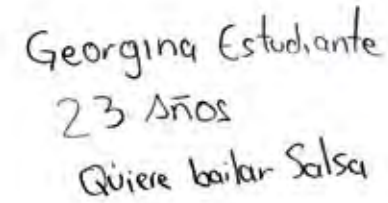 Georgina Estudiante
23 Años
Quiere bailar Salsa